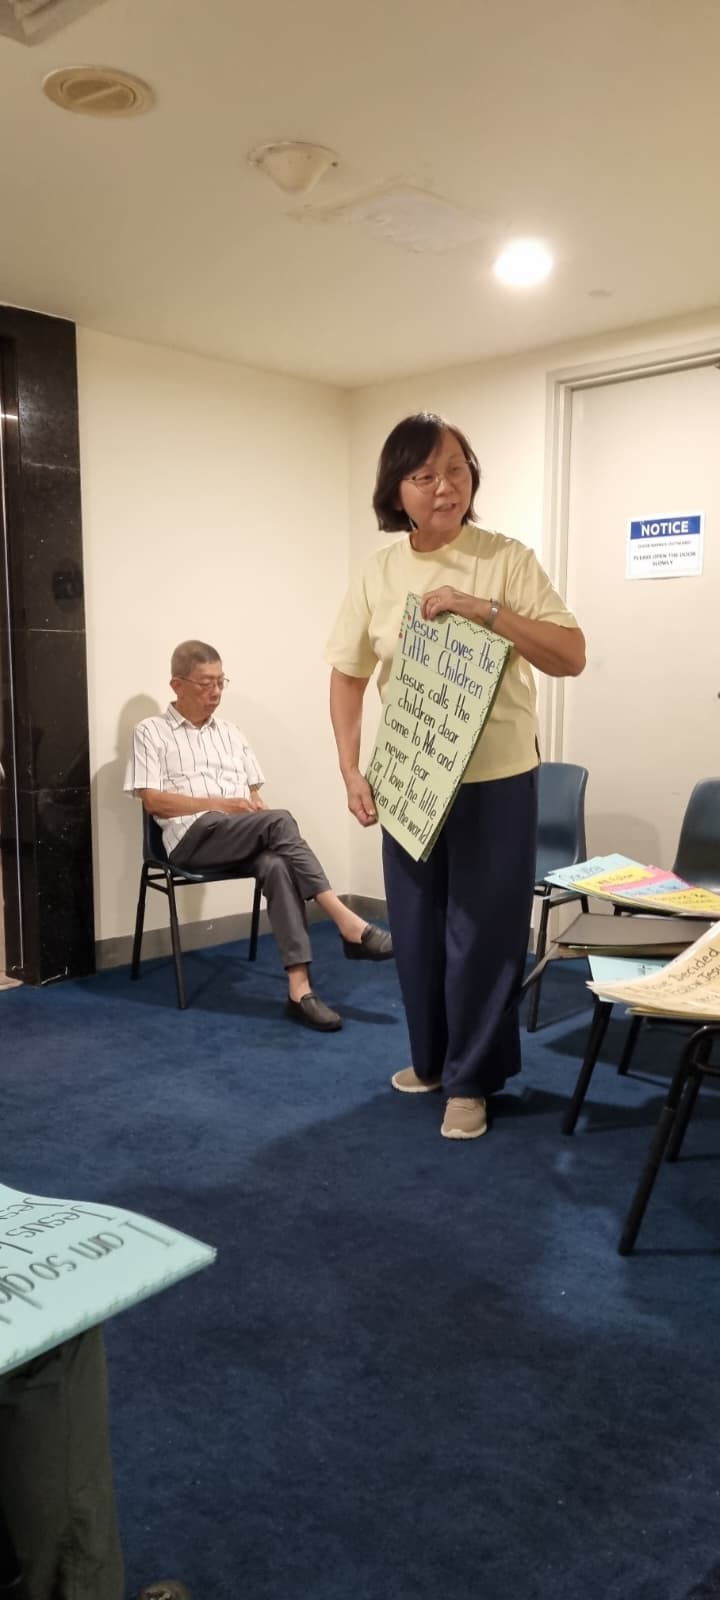 NOTICE
PLEASE OPEN THE DOOR
SLOWLY
Jesus Loves the
Little Children
Jesus calls the
children dear
Come to Me and
never fear
For I love the little
children of the world
Decided
Follow Jesus
I am so glad
Jesus